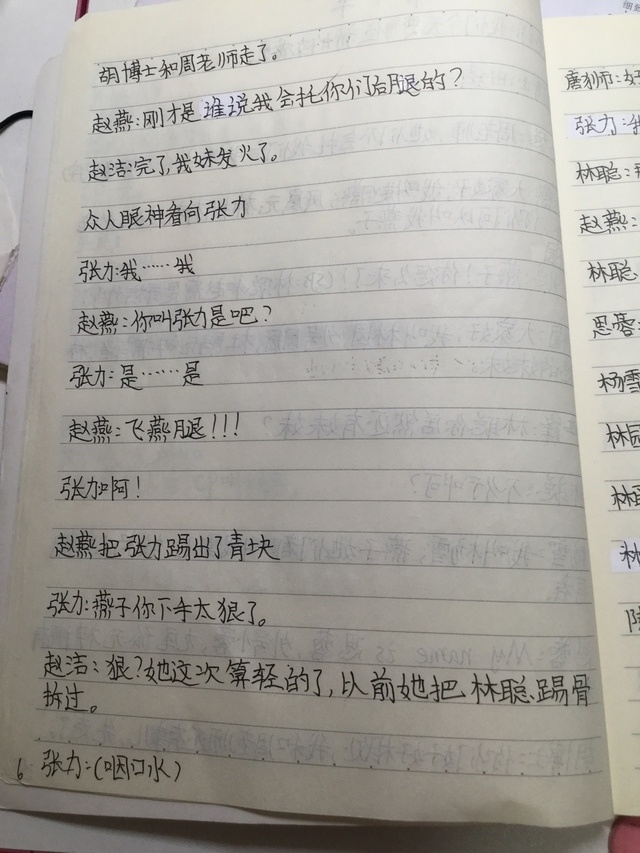 胡博士和周老师走了。
赵燕:刚才是谁说我会托你们后腿的？
赵洁:完了,我妹发火了。
众人眼神看向张力
张力:我……我
赵燕:你叫张力是吧？
张力:是……是
赵燕:飞燕腿!!!
张力:啊！
赵燕把张力踢出了青块
张力:燕子你下手太狠了。
赵洁:狠?她这次算轻的了,以前她把林聪踢骨
拆过。
6 张力:(咽口水)
唐狮:好
张力:我
林聪:
赵燕:
林聪
思蓉:
杨雪
林